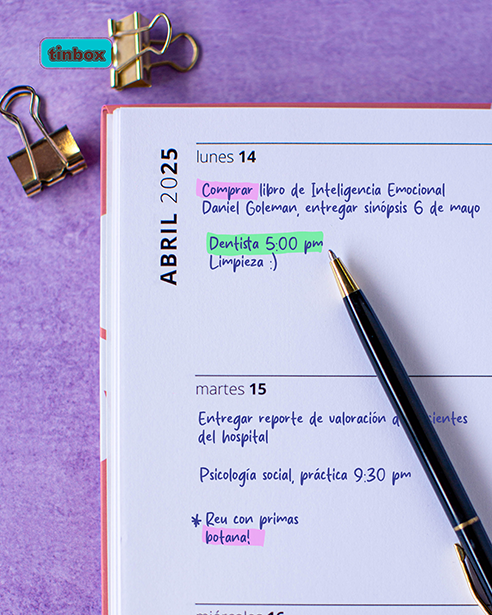 tinbox
ABRIL 2025
lunes 14
Comprar libro de Inteligencia Emocional
Daniel Goleman, entregar sinópsis 6 de mayo
Dentista 5:00 pm
Limpieza :)
martes 15
Entregar reporte de valoración
del hospital
Psicología social, práctica 9:30 pm
* Reu con primas
botana!